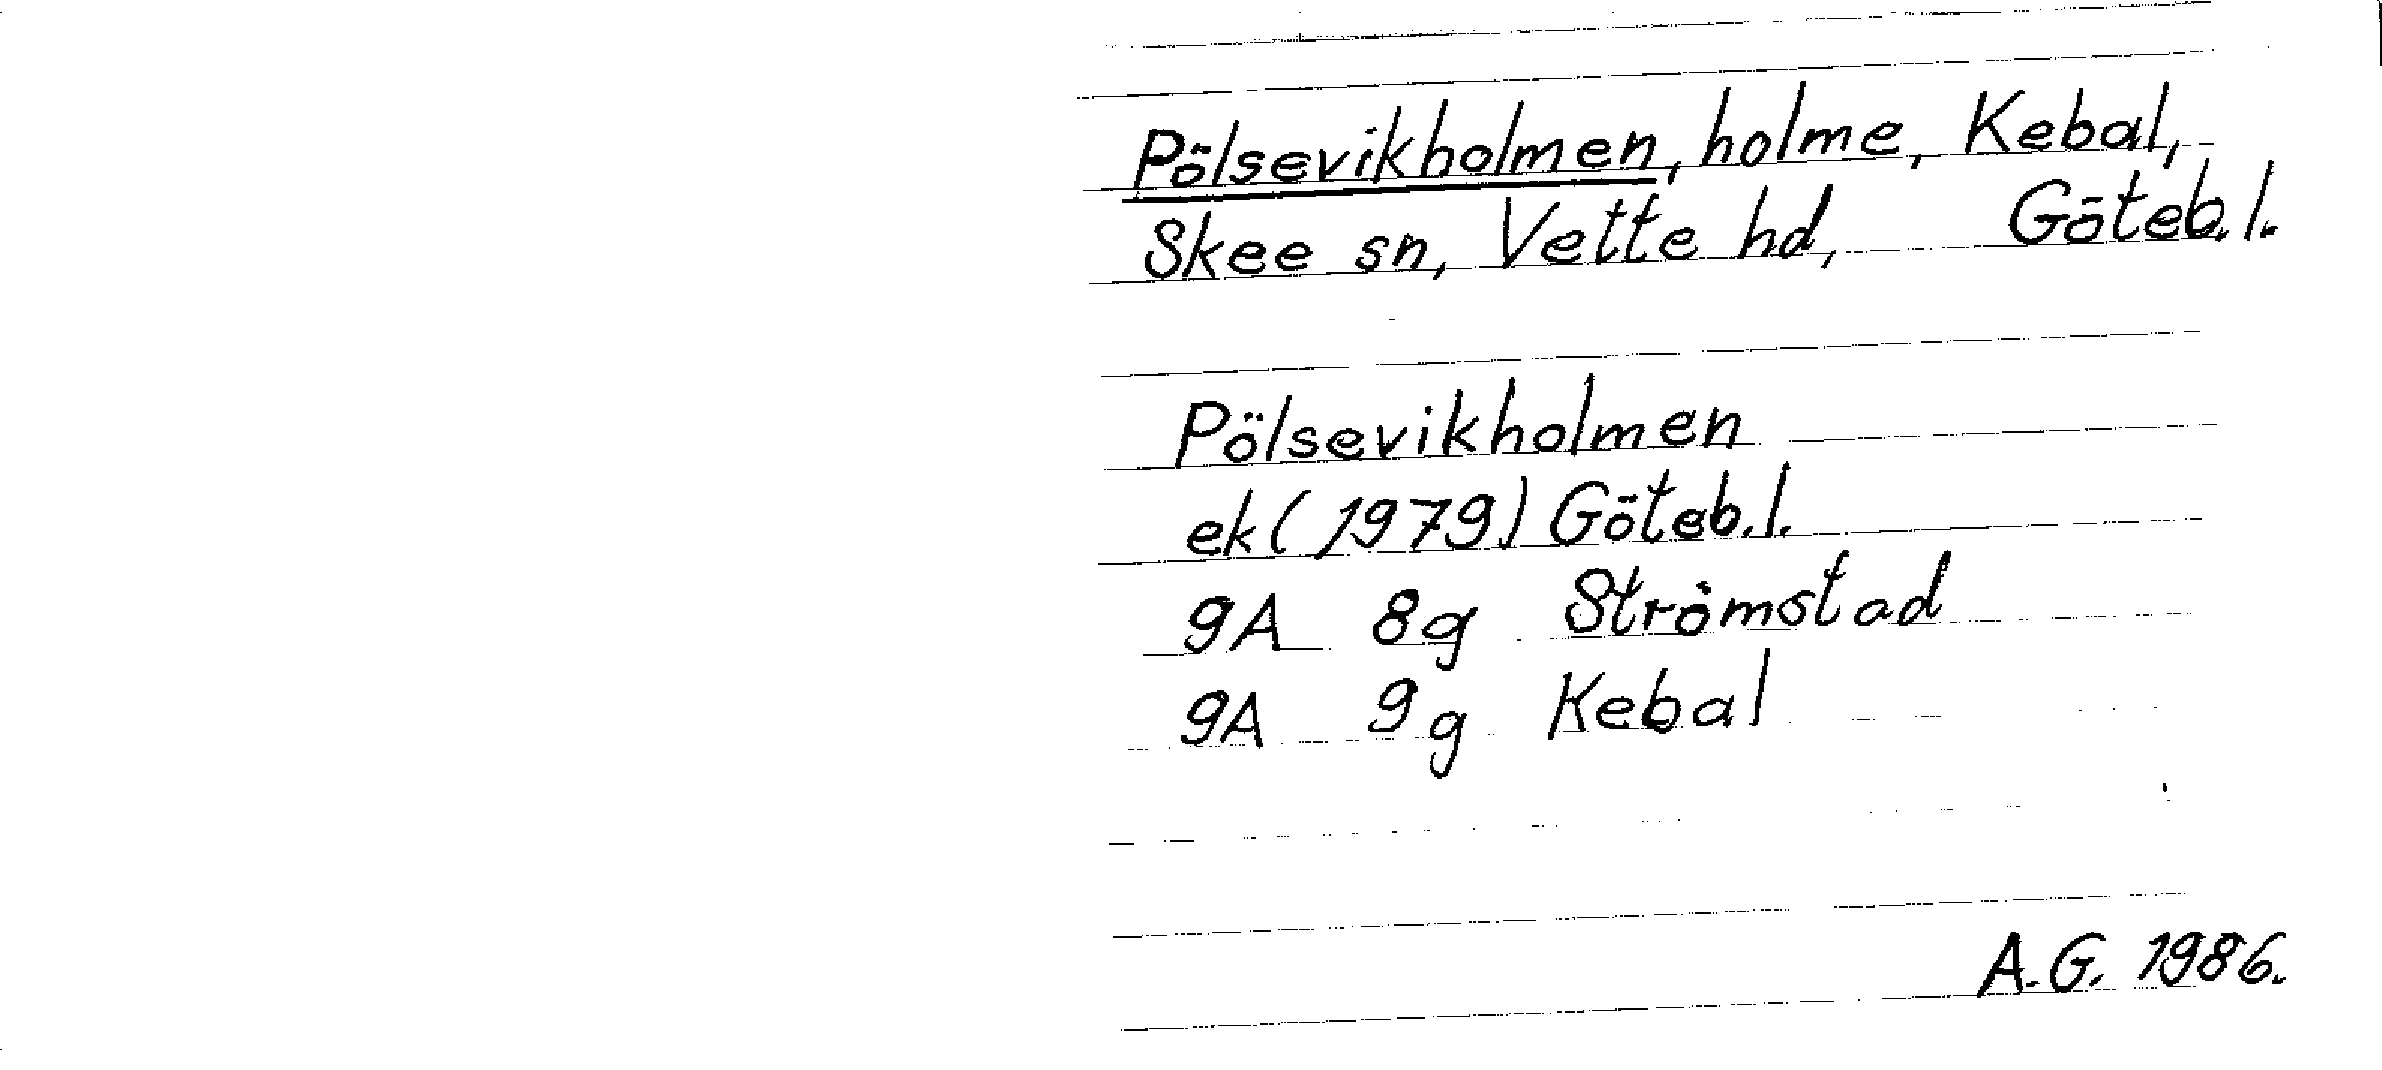 Pölsevikholmen, holme, Kebal,
Skee sn, Vette hd, Göteb.l.
Pölsevikholmen
ek (1979) Göteb.l.
9A 8g Strömstad
9A 9g Kebal
A.G. 1986.